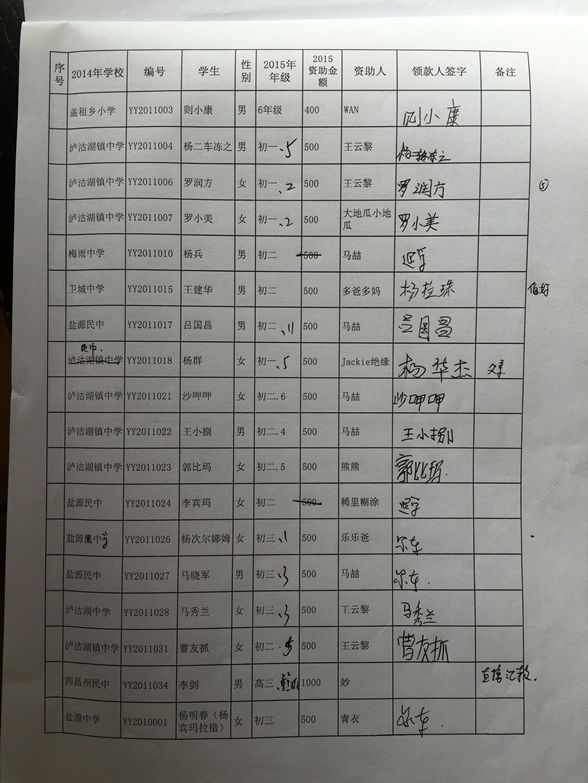 序号 2014年学校 编号 学生 性别 2015年年级 2015资助金额 资助人 领款人签字 备注
盖租乡小学 YY2011003 则小康 男 6年级 400 WAN 则小康
泸沽湖镇中学 YY2011004 杨二车冻之 男 初一.5 500 王云黎
泸沽湖镇中学 YY2011006 罗润方 女 初一.2 500 王云黎 罗润方 ⑤
泸沽湖镇中学 YY2011007 罗小美 女 初一.2 500 大地瓜小地瓜 罗小美
梅雨中学 YY2011010 杨兵 男 初二 500 马喆 退学
卫城中学 YY2011015 王建华 男 初二 500 多爸多妈
盐源民中 YY2011017 吕国昌 男 初二.11 500 马喆 吕国昌
民中
泸沽湖镇中学 YY2011018 杨群 女 初一.5 500 Jackie绝缘 杨华杰
泸沽湖镇中学 YY2011021 沙呷呷 女 初二.6 500 马喆 沙呷呷
泸沽湖镇中学 YY2011022 王小捌 男 初二.4 500 马喆 王小捌
泸沽湖镇中学 YY2011023 郭比玛 女 初二.5 500 熊熊 郭比玛
盐源民中 YY2011024 李宾玛 女 初二 500 稀里糊涂 退学
盐源中学 YY2011026 杨次尔娜姆 女 初三.1 500 乐乐爸 尔车
盐源民中 YY2011027 马晓军 男 初三.3 500 马喆 尔车
泸沽湖中学 YY2011028 马秀兰 女 初三.3 500 王云黎 马秀兰
泸沽湖镇中学 YY2011031 曹友抓 女 初二.5 500 王云黎 曹友抓
西昌州民中 YY2011034 李剑 男 高三 1000 妙 直接汇款.
盐源中学 YY2010001 杨明春（杨宾玛拉措） 女 初三 500 青衣 尔车